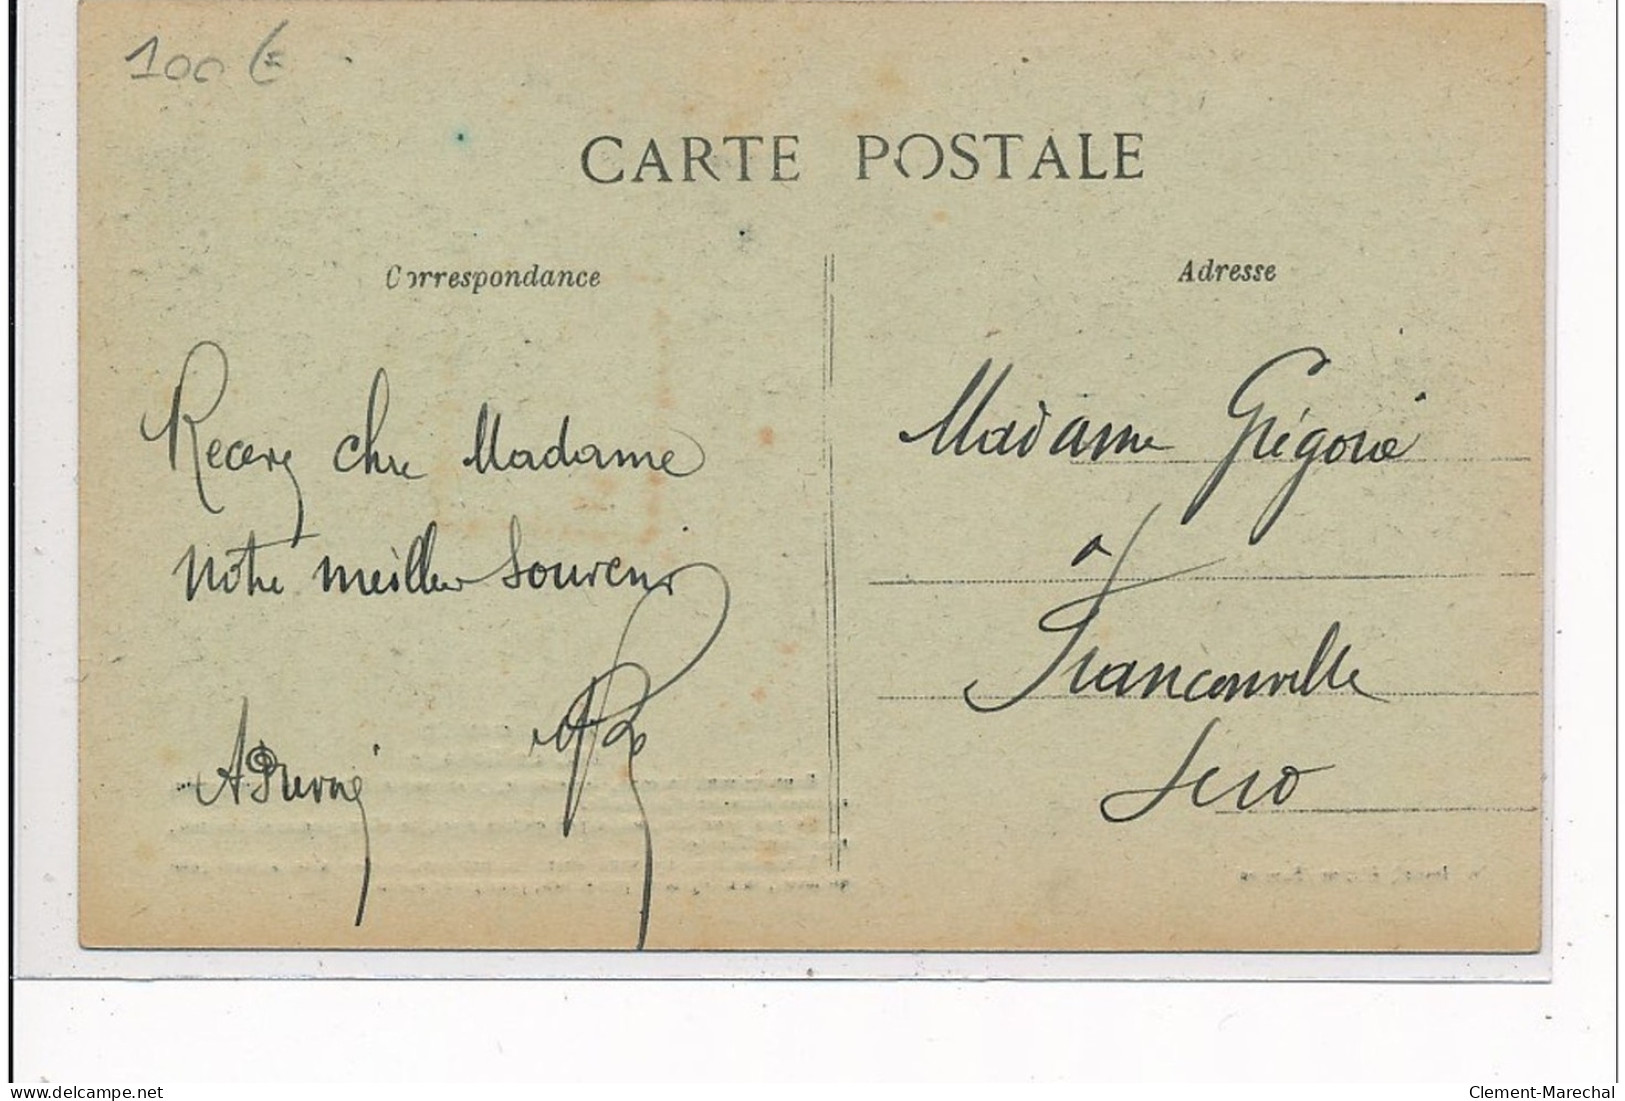 100 €
CARTE POSTALE
Correspondance
Adresse
Recevez chère Madame
notre meilleur souvenir
Madame Grégoire
à
Franconville
www.delcampe.net
Clement-Marechal